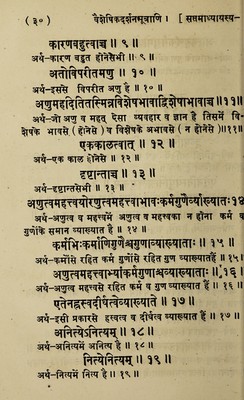 (३०) वैशेषिकदर्शनसूत्राणि । [ सप्तमाध्यायस्य-
कारणबहुत्वाच्च ॥ ९ ॥
अर्थ-कारण बहुत होनेसेभी ॥ ९ ॥
अतोविपरीतमणु ॥ १० ॥
अर्थ-इससे विपरीत अणु है ॥ १० ॥
अणुमहदितितस्मिन्विशेषभावाद्विशेषाभावाच्च ॥११॥
अर्थ-जो अणु व महद् ऐसा व्यवहार व ज्ञान है तिसमें वि-
शेषके भावसे ( होनेसे ) व विशेषके अभावसे ( न होनेसे ) ॥११॥
एककालत्वात् ॥ १२ ॥
अर्थ-एक काल होनेसे ॥ १२ ॥
दृष्टान्ताच्च ॥ १३ ॥
अर्थ-दृष्टान्तसेभी ॥ १३ ॥
अणुत्वमहत्त्वयोरणुत्वमहत्त्वाभावःकर्मगुणैर्व्याख्यातः॥१४
अर्थ-अणुत्व व महत्त्वमें अणुत्व व महत्त्वका न होना कर्म व
गुणोंके समान व्याख्यात है ॥ १४ ॥
कर्मभिःकर्माणिगुणैश्चगुणाव्याख्याताः ॥ १५ ॥
अर्थ-कर्मोंसे रहित कर्म गुणोंसे रहित गुण व्याख्यातहैं ॥ १५ ॥
अणुत्वमहत्त्वाभ्यांकर्मगुणाश्चव्याख्याताः ॥ १६ ॥
अर्थ-अणुत्व महत्त्वसे रहित कर्म व गुण व्याख्यात हैं ॥ १६ ॥
एतेनह्रस्वदीर्घत्वेव्याख्याते ॥ १७ ॥
अर्थ-इसी प्रकारसे ह्रस्वत्व व दीर्घत्व व्याख्यात हैं ॥ १७ ॥
अनित्येऽनित्यम् ॥ १८ ॥
अर्थ-अनित्यमें अनित्य है ॥ १८ ॥
नित्येनित्यम् ॥ १९ ॥
अर्थ-नित्यमें नित्य है ॥ १९ ॥